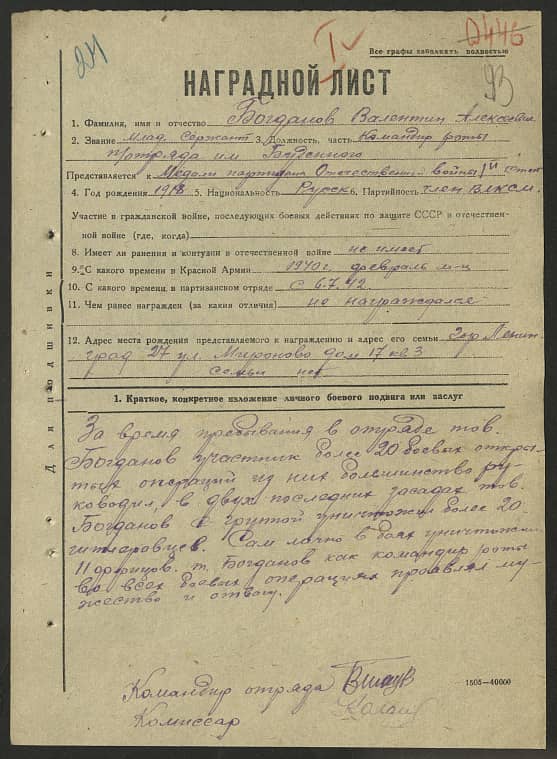 24
Iv
0446
93
Все графы заполнять полностью
НАГРАДНОЙ ЛИСТ
1. Фамилия, имя и отчество Богданов Валентин Алексеевич
2. Звание млад. Сержант 3. Должность, часть Командир роты
п/отряда им Буденного
Представляется к Медали партизана Отечественной войны II степ
4. Год рождения 1918 5. Национальность Русск 6. Партийность член ВЛКСМ.
Участие в гражданской войне, последующих боевых действиях по защите СССР в отечествен-
ной войне (где, когда)
8. Имеет ли ранения и контузии в отечественной войне не имеет
9. С какого времени в Красной Армии 1940г. февраль м-ц
10. С какого времени в партизанском отряде с 6.7.42
11. Чем ранее награжден (за какия отличия) не награждался
12. Адрес места рождения представляемого к награждению и адрес его семьи гор Ленин-
град 27 ул. Миронова дом 17 кв 3
Семьи нет
Для подшивки
1. Краткое, конкретное изложение личного боевого подвига или заслуг
За время пребывания в отряде тов.
Богданов участник более 20 боевых откры-
тых операций из них большинство ру-
ководил, в двух последних засадах тов.
Богданов с группой уничтожил более 20
гитлеровцев. Сам лично в боях уничтожил
11 фрицов. т. Богданов как командир роты
во всех боевых операциях проявлял му-
жество и отвагу.
Командир отряда
Комиссар
1505—40000